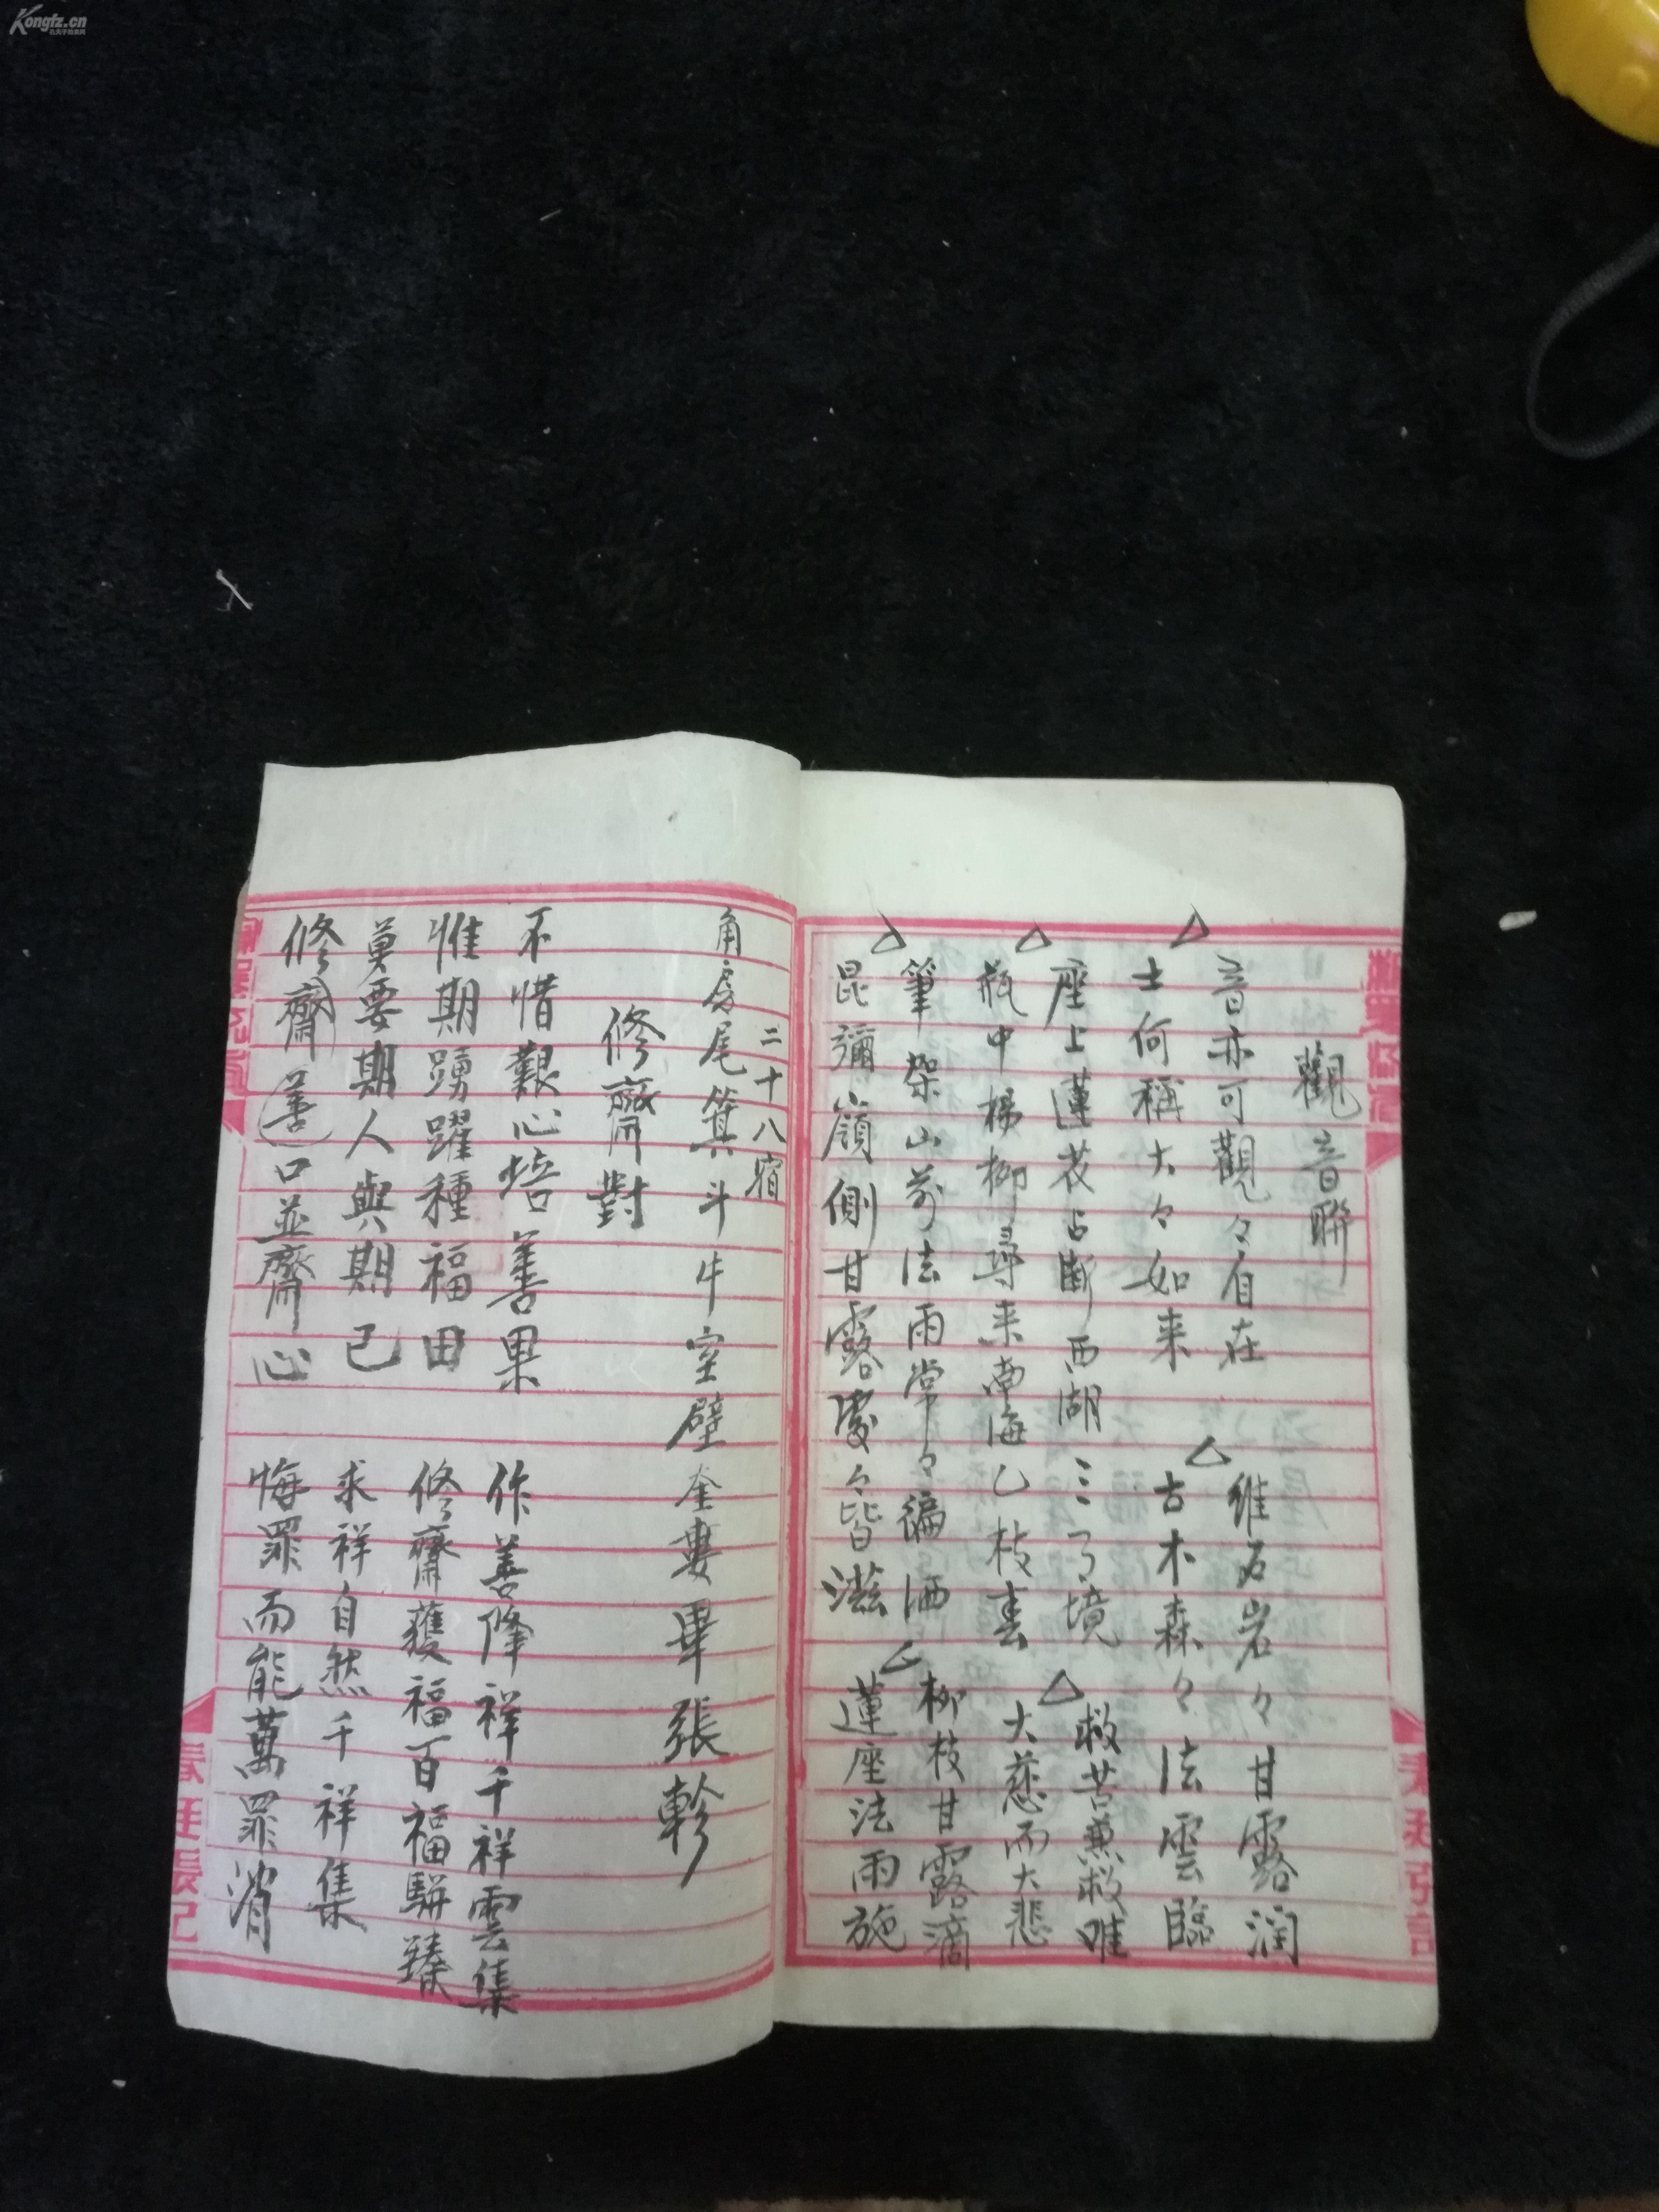 Kongfz.cn
孔夫子旧书网
觀音聯
音亦可觀々自在
士何稱大々如来
維石岩々甘露润
古木森々法雲臨
座上蓮花占断西湖三了境
瓶中楊柳尋来南海乙枝春
救苦兼救难
大慈而大悲
筆架山前法雨常々徧洒
昆彌嶺側甘露處々皆滋
柳枝甘露滴
蓮座法雨施
二十八宿
角房尾箕斗牛室壁奎婁畢張軫
修齋對
不惜艱心培善果
惟期踴躍種福田
作善降祥千祥雲集
修齋獲福百福駢臻
莫要期人與期己
修齋善口並齋心
求祥自然千祥集
悔罪而能萬罪消